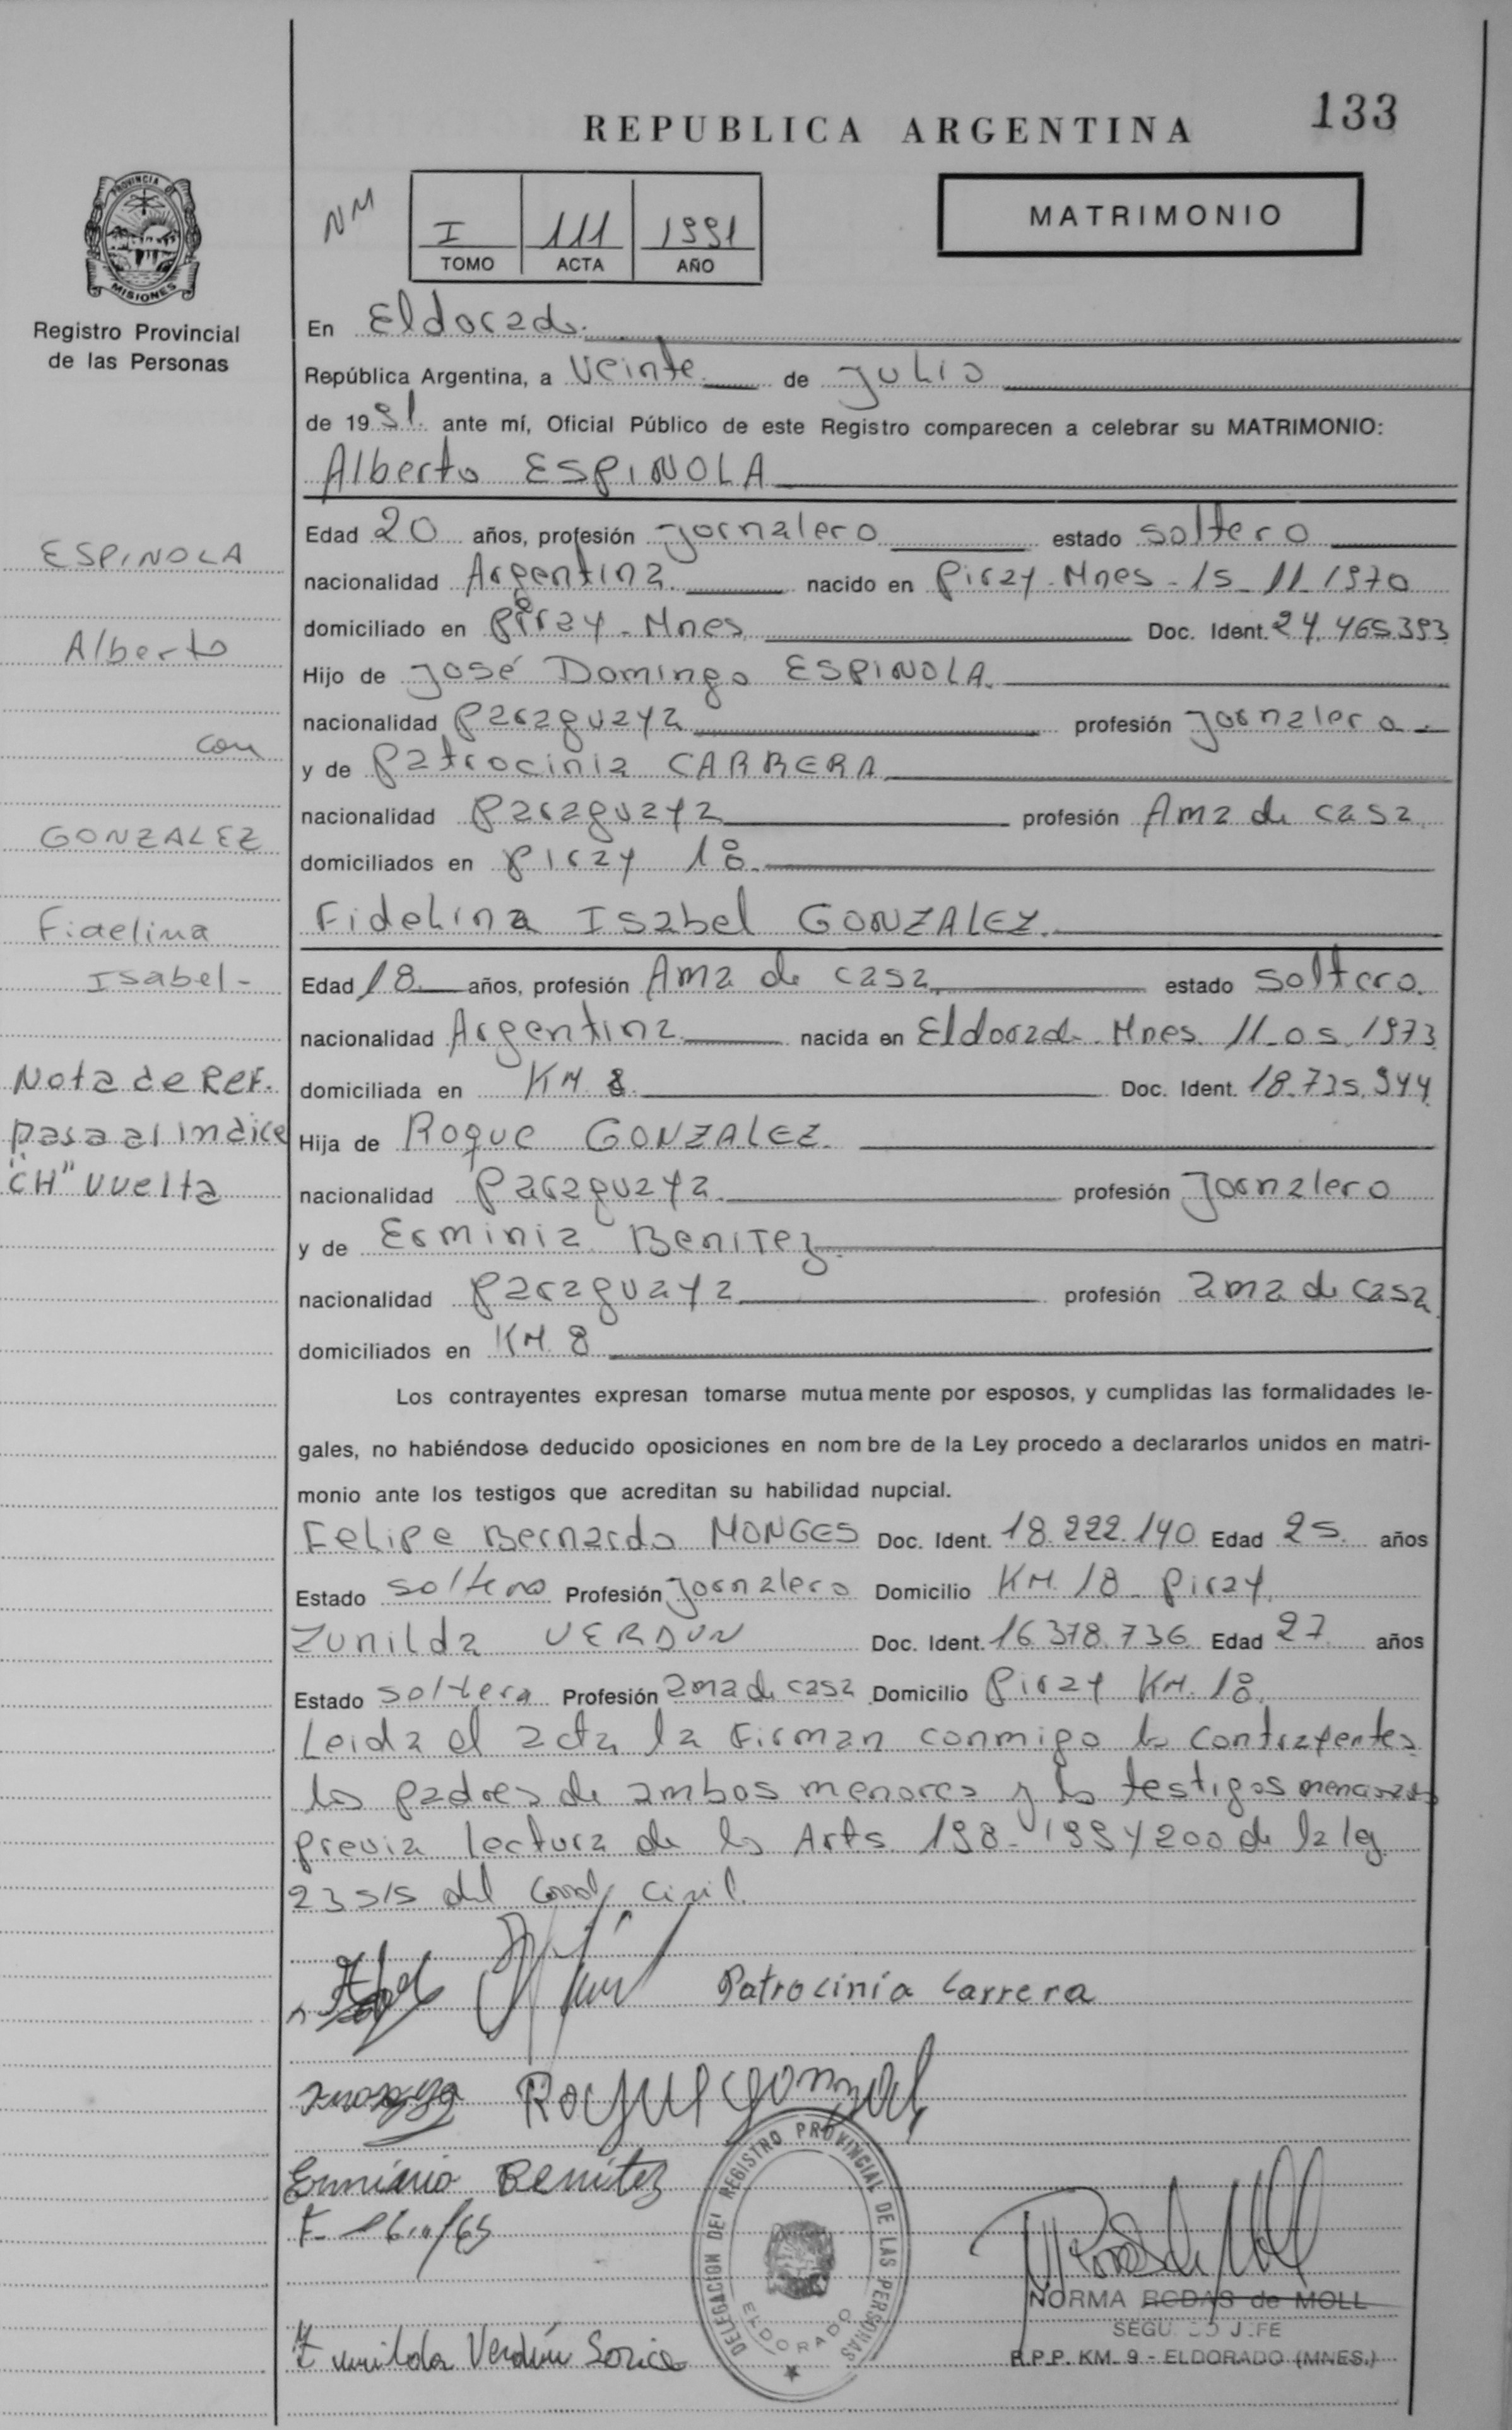 133
REPUBLICA ARGENTINA
PROVINCIA DE
MISIONES
Registro Provincial
de las Personas
NM
I 111 1991
TOMO ACTA AÑO
MATRIMONIO
En Eldorado.
República Argentina, a Veinte de Julio
de 1991. ante mí, Oficial Público de este Registro comparecen a celebrar su MATRIMONIO:
Alberto ESPINOLA
Edad 20 años, profesión Jornalero estado soltero
nacionalidad Argentina nacido en Piray-Mnes-15-11-1970
domiciliado en Piray-Mnes Doc. Ident. 24.465.393
Hijo de José Domingo ESPINOLA.
nacionalidad Paraguaya profesión Jornalero
y de Patrocinia CARRERA
nacionalidad Paraguaya profesión Ama de casa
domiciliados en Piray 18.
Fidelina Isabel GONZALEZ.
Edad 18 años, profesión Ama de casa estado soltera.
nacionalidad Argentina nacida en Eldorado-Mnes 11-05-1973
domiciliada en KM 8 Doc. Ident. 18.725.944
Hija de Roque GONZALEZ.
nacionalidad Paraguaya profesión Jornalero
y de Erminia Benitez
nacionalidad Paraguaya profesión ama de casa
domiciliados en KM. 8
Los contrayentes expresan tomarse mutuamente por esposos, y cumplidas las formalidades le-
gales, no habiéndose deducido oposiciones en nombre de la Ley procedo a declararlos unidos en matri-
monio ante los testigos que acreditan su habilidad nupcial.
Felipe Bernardo MONGES Doc. Ident. 18.222.140 Edad 25. años
Estado soltero Profesión Jornalero Domicilio KM. 18 Piray
Zunilda VERDUN Doc. Ident. 16.378.736 Edad 27 años
Estado soltera Profesión ama de casa Domicilio Piray KM. 18.
Leida el acta la firman conmigo los contrayentes
los padres de ambos menores y los testigos mencionados
previa lectura de los Arts. 198-199 y 200 de la ley
23515 del Civil.
ESPINOLA
Alberto
con
GONZALEZ
Fidelina
Isabel-
Nota de Ref.
pasa al indice
"CH" vuelta
Patrocinia Carrera
Roque Gonzal
Erminia Benitez
Zunilda Verdún
DELEGACION DEL REGISTRO PROVINCIAL DE LAS PERSONAS
ELDORADO
NORMA RODAS de MOLL
SEGUNDO JEFE
R.P.P. KM. 9 - ELDORADO (MNES.)